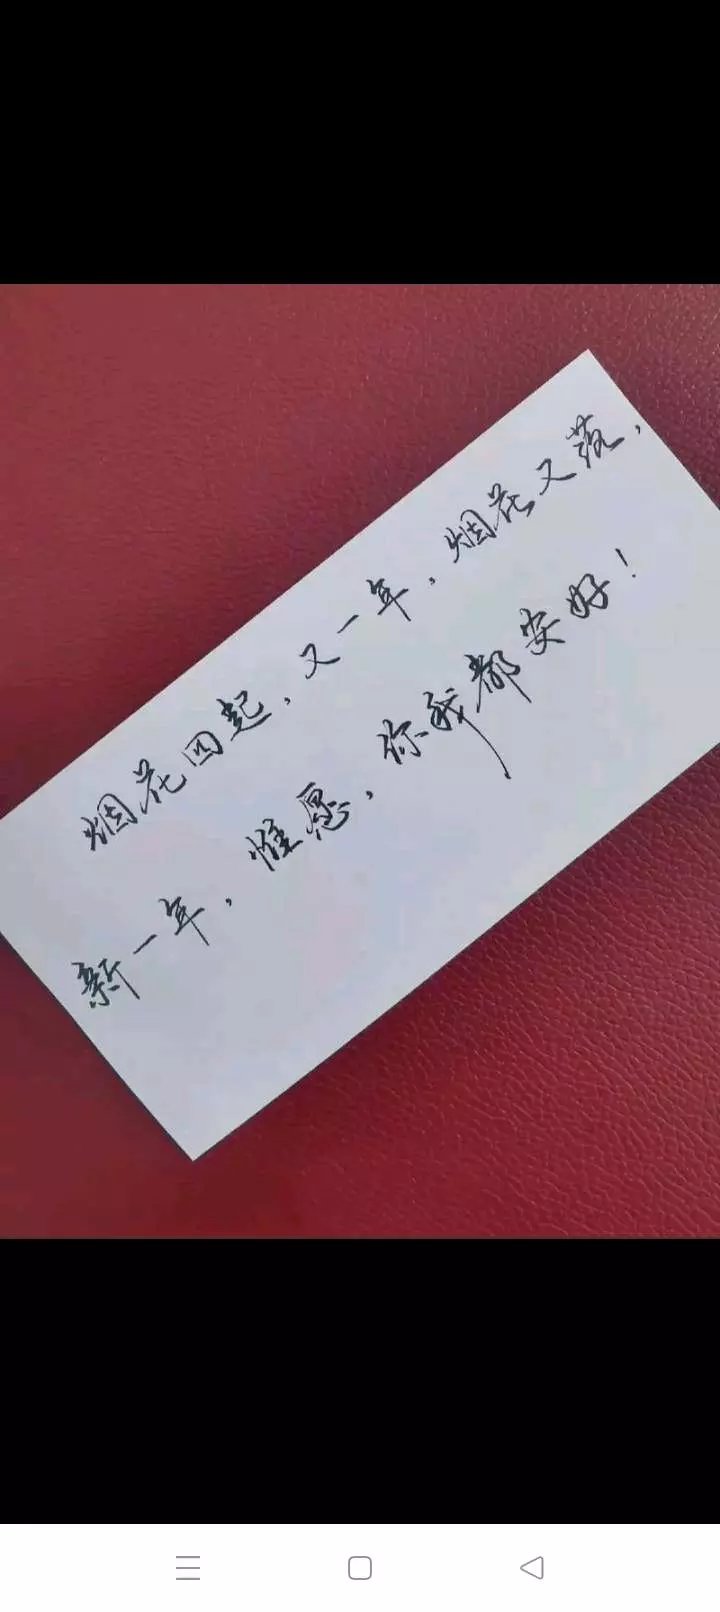 烟花四起，又一年，烟花又落，
新一年，惟愿，你我都安好！